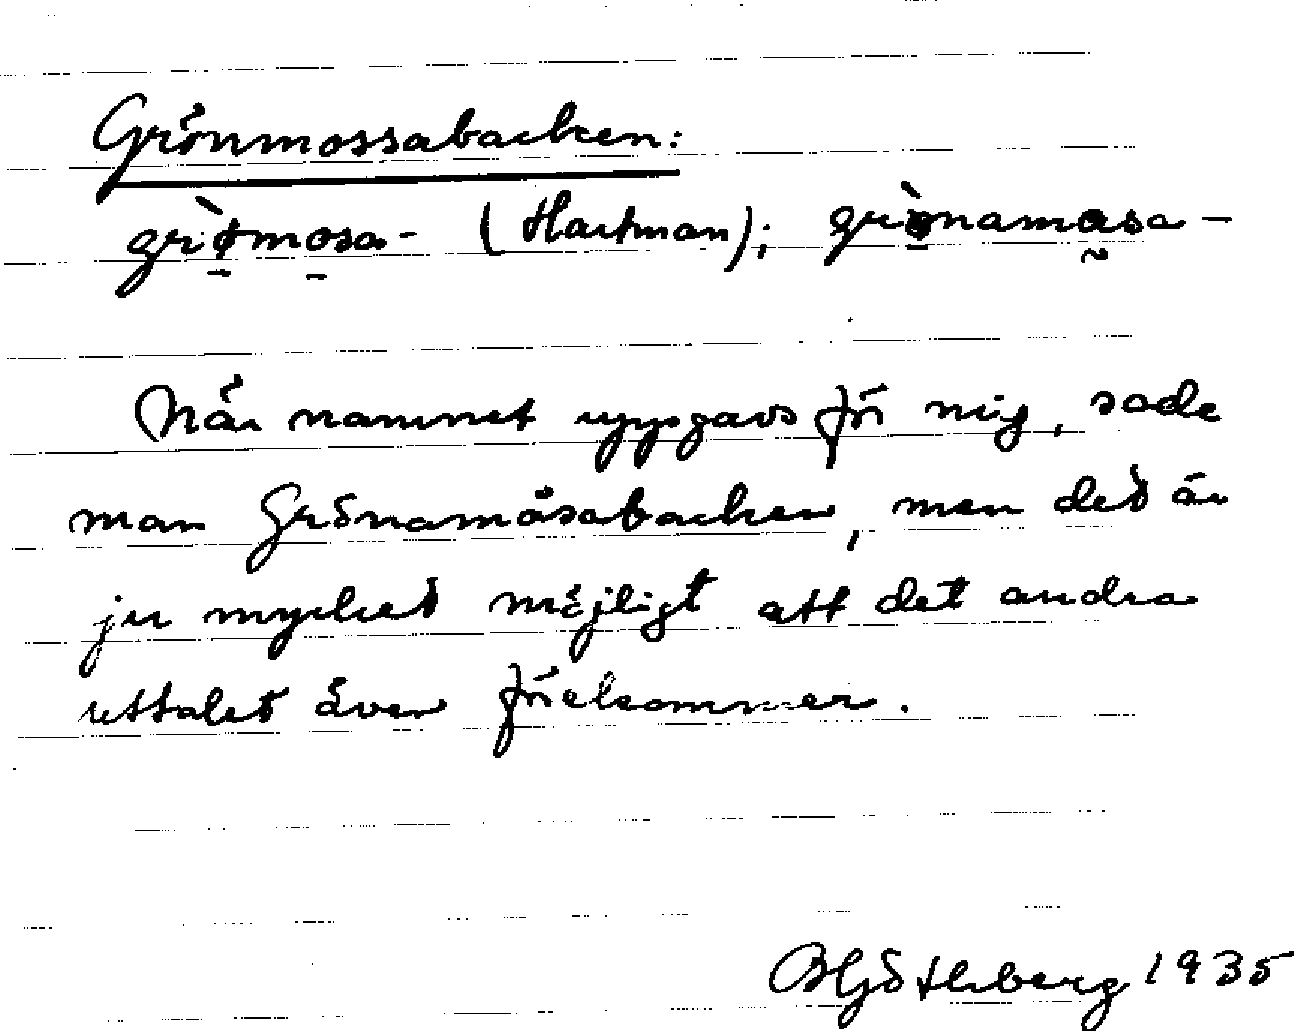 Grönmossabacken:
grø̀mosa- (Hartman); grø̀namosa-
När namnet uppgavs för mig, sade
man Grönamåsabacken, men det är
ju mycket möjligt att det andra
uttalet även förekommer.
1935